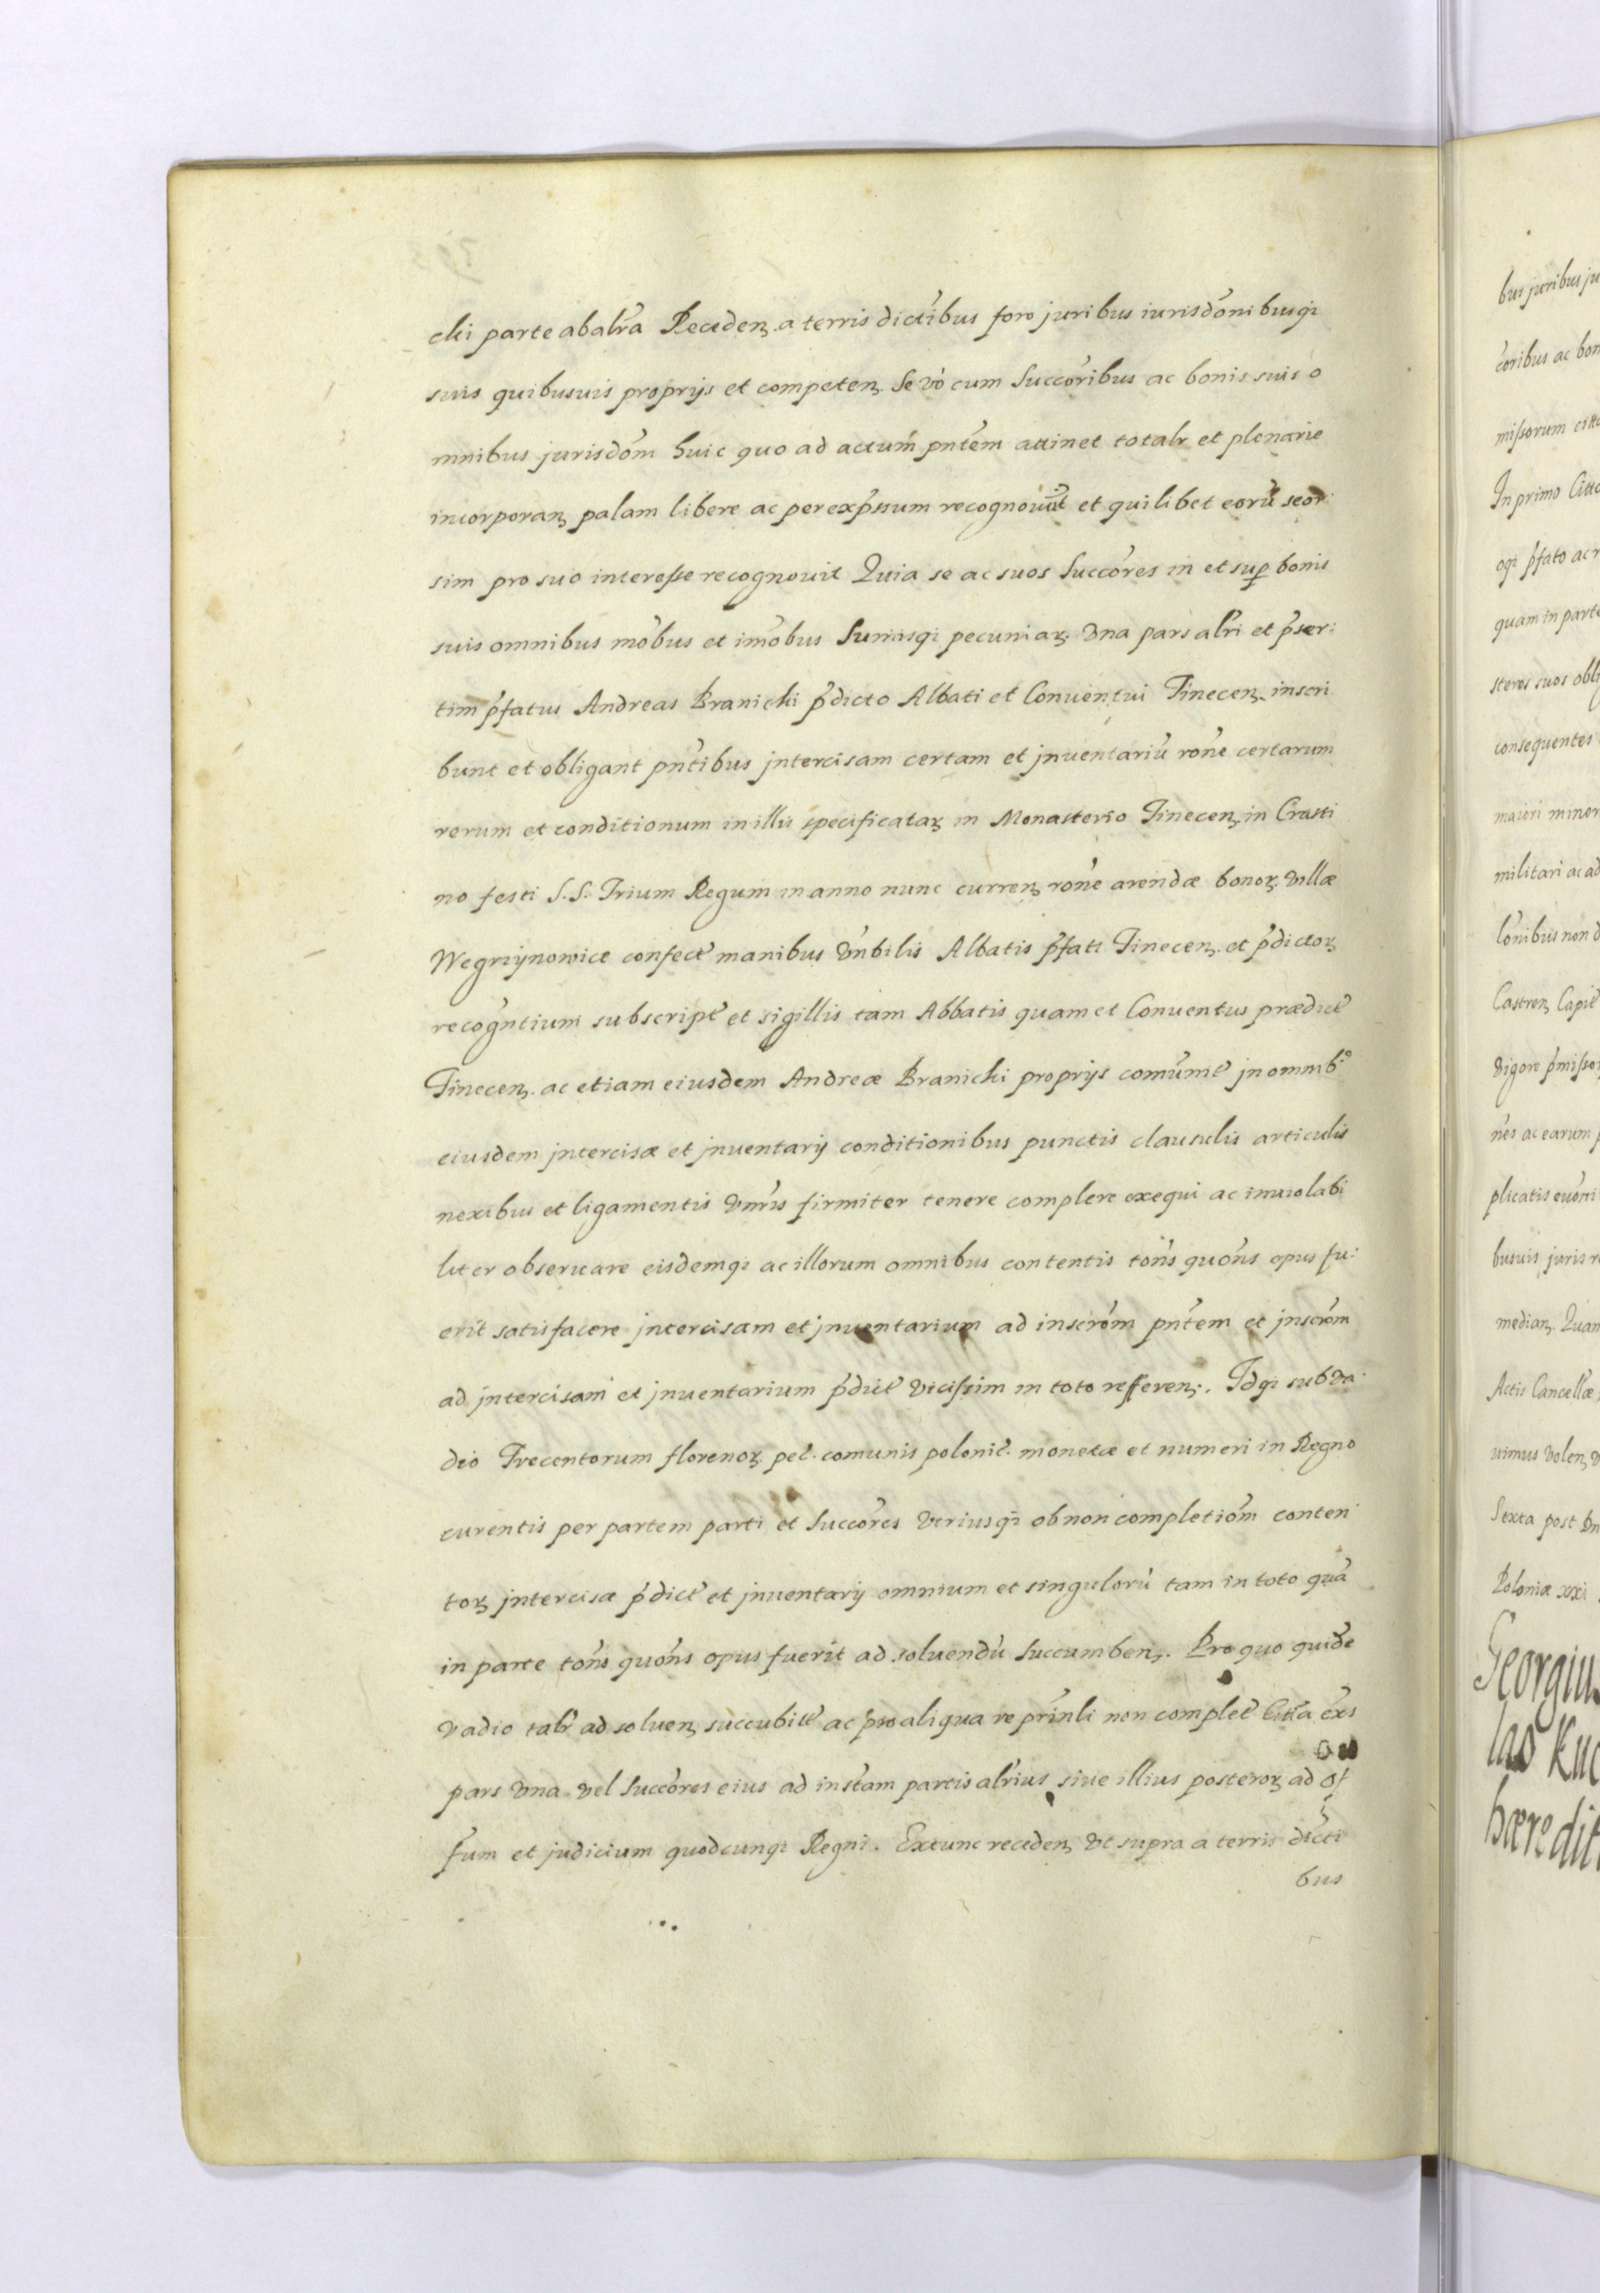 cki parte ab alr̃a Receden̨ a terris dictĩbus foro juribus iurisdõnibusq̨
suis quibusuis proprijs et competen̨ Se vò cum Succõribus ac bonis suis o
mnibus jurisdõm huic quo ad actum pñtem attinet totalr et plenarie
incorporan̨ palam libere ac per exp̃ssum recognouũt et quilibet eorũ seor
sim pro suo interesse recognouit Quia se ac suos Succõres in et sup̱ bonis
suis omnibus mõbus et im̃obus Sum̃isq̨ pecuniaꝝ vna pars alr̃i et p̃ser:
tim p̃fatus Andreas Branicki p̃dicto Abbati et Conuentui Tinecen̨ inscri
bunt et obligant pñtibus jntercisam certam et jnuentariũ rõne certarum
rerum et conditionum in illis specificataꝝ in Monasterio Tinecen̨ in Crasti
no festi S.S. Trium Regum in anno nunc curren̨ rõne arendæ bonoꝝ villæ
Węgrzynowice confect̃ manibus Vñbilis Abbatis p̃fati Tinecen̨ et p̃dictoꝝ
recogñtium subscript̃ et sigillis tam Abbatis quam et Conuentus prædict̃
Tinecen̨ ac etiam eiusdem Andreæ Branicki proprijs comũnit̃ jn omnibꝰ
eiusdem jntercisæ et jnuentarij conditionibus punctis clausulis articulis
nexibus et ligamentis vnĩrs firmiter tenere complere exequi ac inuiolabi
liter obseruare eisdemq̨ ac illorum omnibus contentis tõns quõns opus fu:
erit satisfacere jntercisam et jnuentarium ad inscrõm pñtem et jnscrõm
ad jntercisam et jnuentarium p̃dict̃ vicissim in toto referen̨. Idq̨ sub va
dio Trecentorum florenoꝝ pec̃. comunis polonic̃. monetæ et numeri in Regno
curentis per partem parti et Succõres vtriusq̨ ob non completiõm conten
toꝝ jntercisæ p̃dict̃ et jnuentarij omnium et singulorũ tam in toto quã
in parte tõns quõns opus fuerit ad soluendũ Succumben̨. Pro quo quidẽ
vadio talr̃ ad soluen̨ succubitt̃ ac pro aliqua re prĩnli non complet̃ Citta ẽxs
pars vna vel Succõres eius ad instam̃ partis alr̃ius siue illius posteroꝝ ad of
fum et judicium quodcunq̨ Regni. Extunc receden̨ vt supra a terris dicti
bus
bus juribus ju
cõribus ac bon
missorum citta
In primo Citto
oq̨ p̃fato ac
quam in parte
steros suos obli
consequentes
maiori minor
militari ac ad
lõnibus non
Castren̨ Capit̃
vigore p̃missor
nẽs ac earum
plicatis euõni
busuis juris
median̨. Quam
Actis Cancellæ
uimus volen̨
Sexta post
Poloniæ xxi
Georgius
las Kuc
hæredit